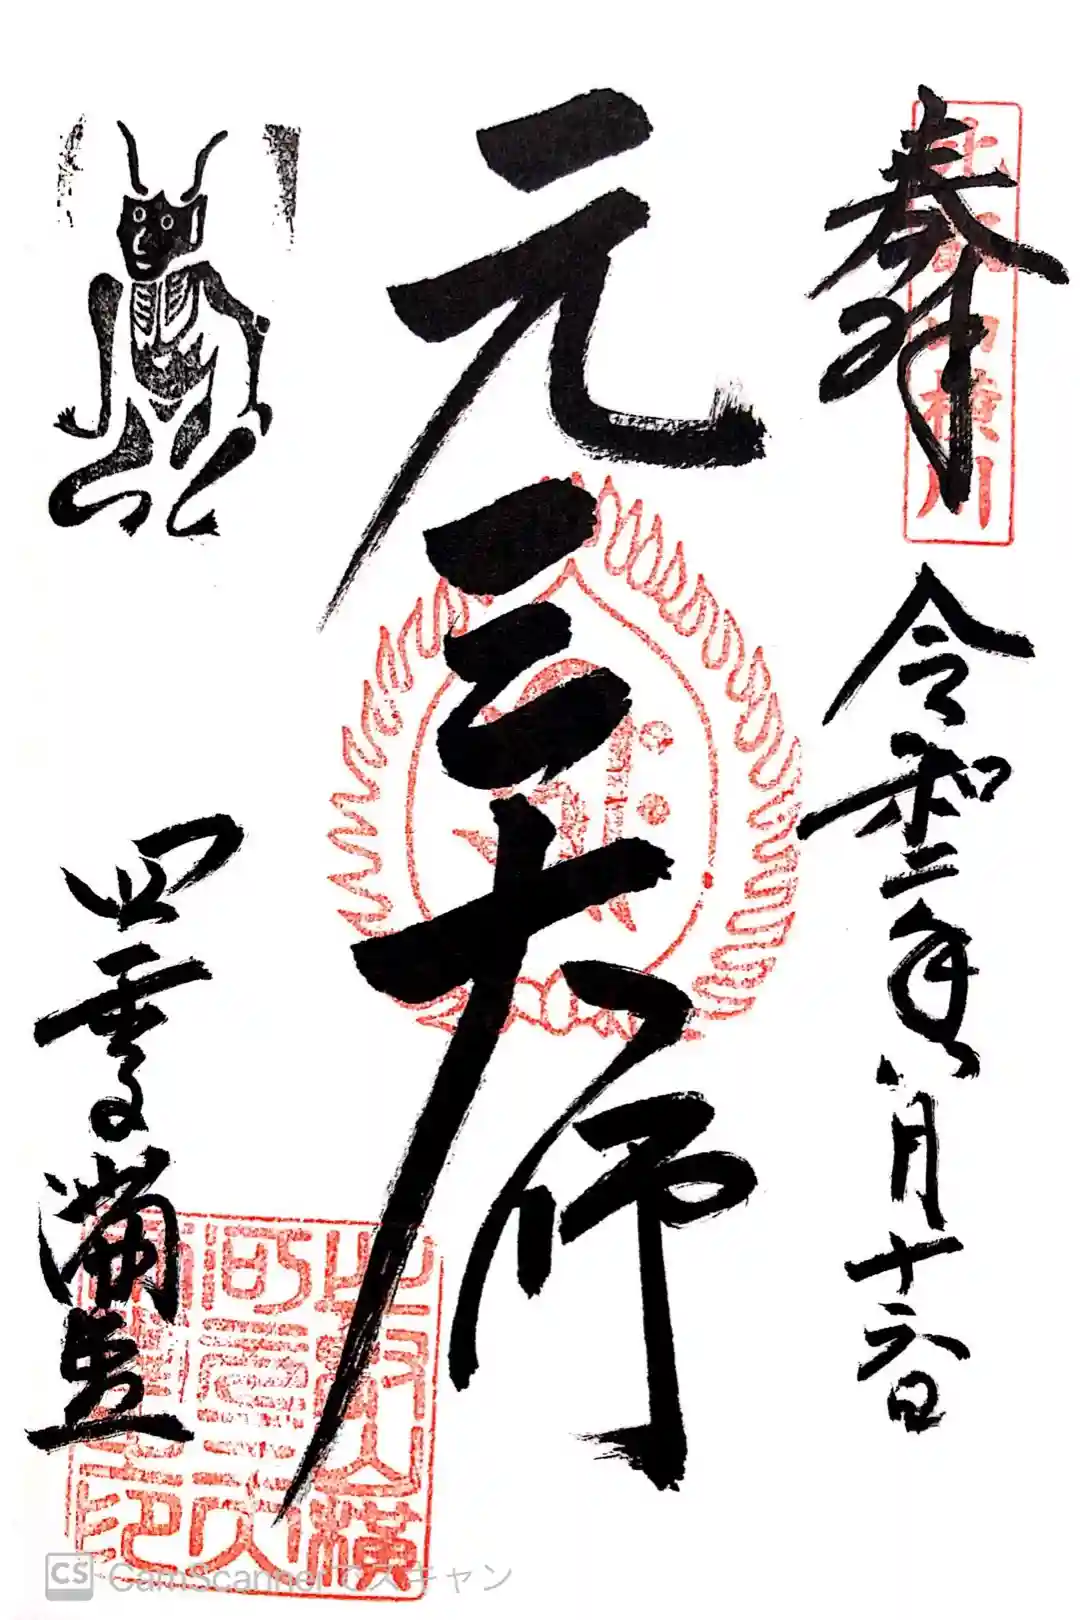 奉拝
比叡山横川
令和二年八月十六日
元三大師
四季講堂
比叡山横
川元三大
師四季講堂印
CS CamScannerでスキャン